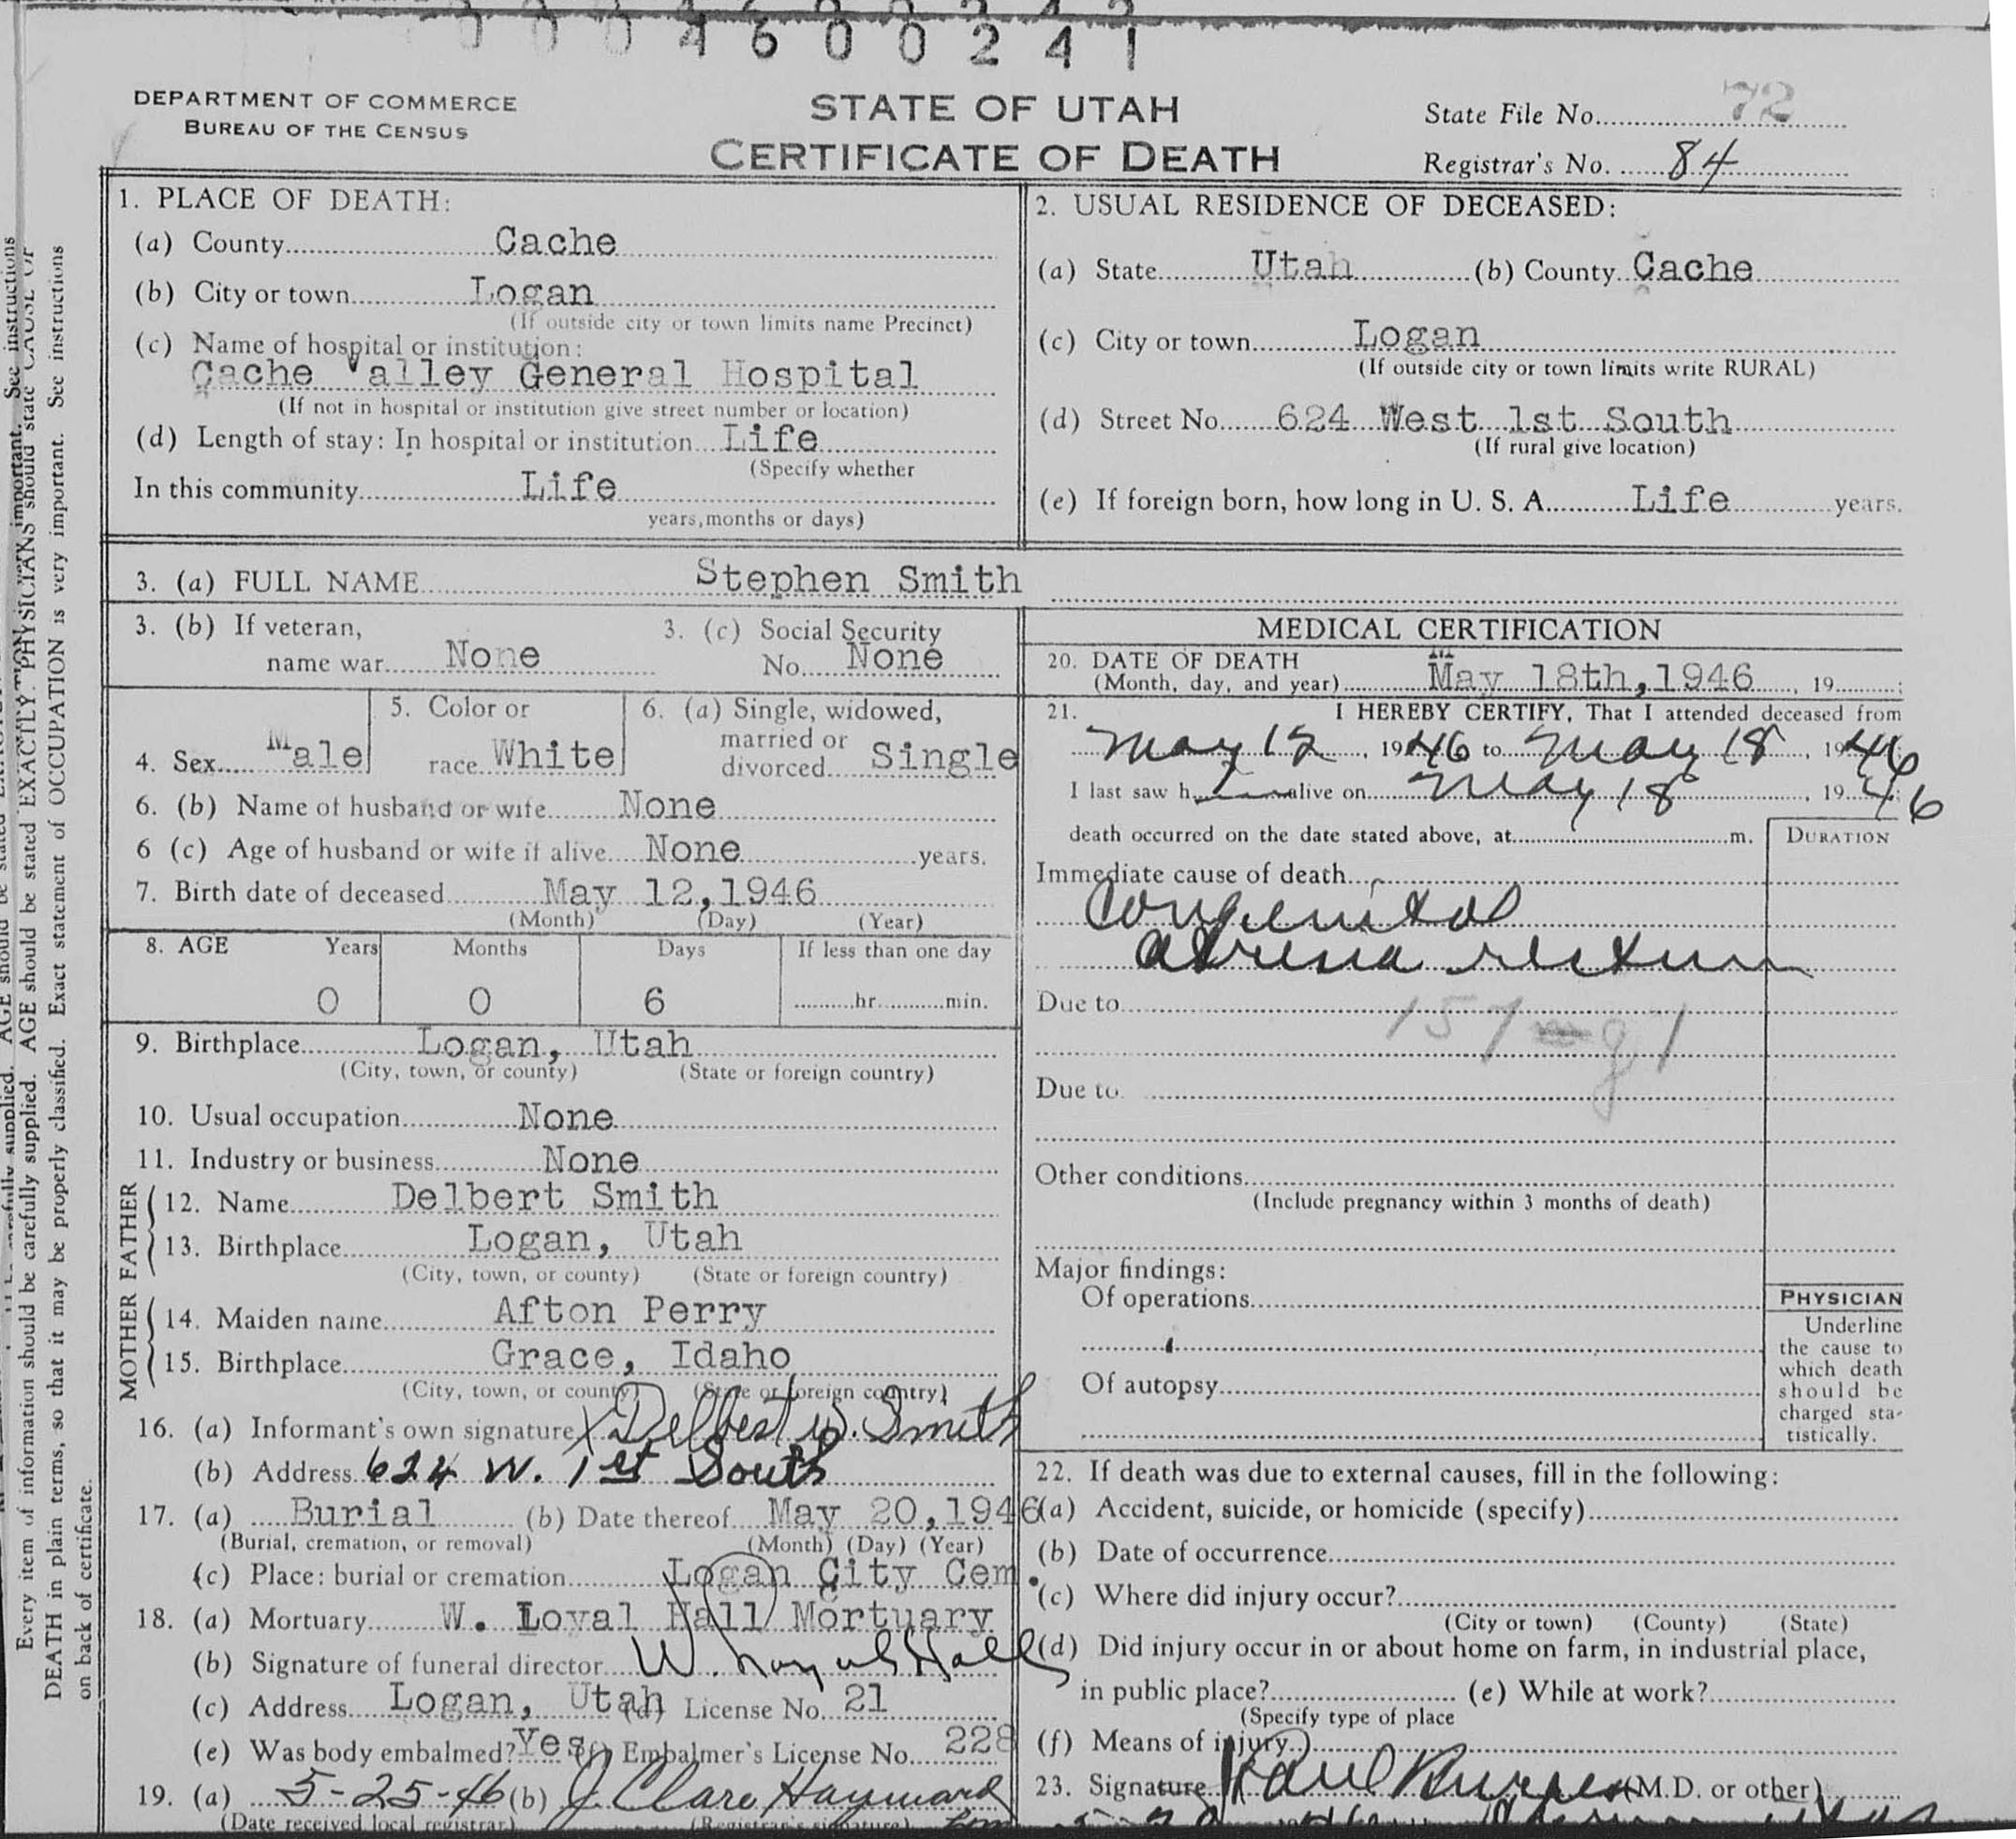 4 6 0 0 2 4 1
DEPARTMENT OF COMMERCE
BUREAU OF THE CENSUS
STATE OF UTAH
CERTIFICATE OF DEATH
State File No. 72
Registrar's No. 84
1. PLACE OF DEATH:
(a) County Cache
(b) City or town Logan
(If outside city or town limits name Precinct)
(c) Name of hospital or institution:
Cache Valley General Hospital
(If not in hospital or institution give street number or location)
(d) Length of stay: In hospital or institution Life
(Specify whether
In this community Life
years, months or days)
2. USUAL RESIDENCE OF DECEASED:
(a) State Utah (b) County Cache
(c) City or town Logan
(If outside city or town limits write RURAL)
(d) Street No. 624 West 1st South
(If rural give location)
(e) If foreign born, how long in U. S. A. Life years.
3. (a) FULL NAME Stephen Smith
3. (b) If veteran,
name war None
3. (c) Social Security
No. None
4. Sex Male
5. Color or
race White
6. (a) Single, widowed,
married or
divorced Single
6. (b) Name of husband or wife None
6 (c) Age of husband or wife if alive None years.
7. Birth date of deceased May 12, 1946
(Month) (Day) (Year)
8. AGE Years Months Days If less than one day
0 0 6 hr. min.
9. Birthplace Logan, Utah
(City, town, or county) (State or foreign country)
10. Usual occupation None
11. Industry or business None
FATHER
12. Name Delbert Smith
13. Birthplace Logan, Utah
(City, town, or county) (State or foreign country)
MOTHER
14. Maiden name Afton Perry
15. Birthplace Grace, Idaho
(City, town, or county) (State or foreign country)
16. (a) Informant's own signature X Delbert W. Smith
(b) Address 624 W. 1st South
17. (a) Burial (b) Date thereof May 20, 1946
(Burial, cremation, or removal) (Month) (Day) (Year)
(c) Place: burial or cremation Logan City Cem.
18. (a) Mortuary W. Loyal Hall Mortuary
(b) Signature of funeral director W. Loyal Hall
(c) Address Logan, Utah (d) License No. 21
(e) Was body embalmed? Yes (f) Embalmer's License No. 228
19. (a) 5-25-46 (b) J. Clare Hayward
(Date received local registrar) (Registrar's signature)
MEDICAL CERTIFICATION
20. DATE OF DEATH
(Month, day, and year) May 18th, 1946, 19
21. I HEREBY CERTIFY, That I attended deceased from
May 12, 1946 to May 18, 1946
I last saw h alive on May 18, 1946
death occurred on the date stated above, at m.
DURATION
Immediate cause of death
Congenital
atresia rectum
Due to 157 g1
Due to
Other conditions
(Include pregnancy within 3 months of death)
Major findings:
Of operations
Of autopsy
PHYSICIAN
Underline
the cause to
which death
should be
charged sta-
tistically.
22. If death was due to external causes, fill in the following:
(a) Accident, suicide, or homicide (specify)
(b) Date of occurrence
(c) Where did injury occur?
(City or town) (County) (State)
(d) Did injury occur in or about home on farm, in industrial place,
in public place? (e) While at work?
(Specify type of place
(f) Means of injury )
23. Signature (M.D. or other)
Every item of information should be carefully supplied. AGE should be stated EXACTLY. PHYSICIANS should state CAUSE OF
DEATH in plain terms, so that it may be properly classified. Exact statement of OCCUPATION is very important. See instructions
on back of certificate.